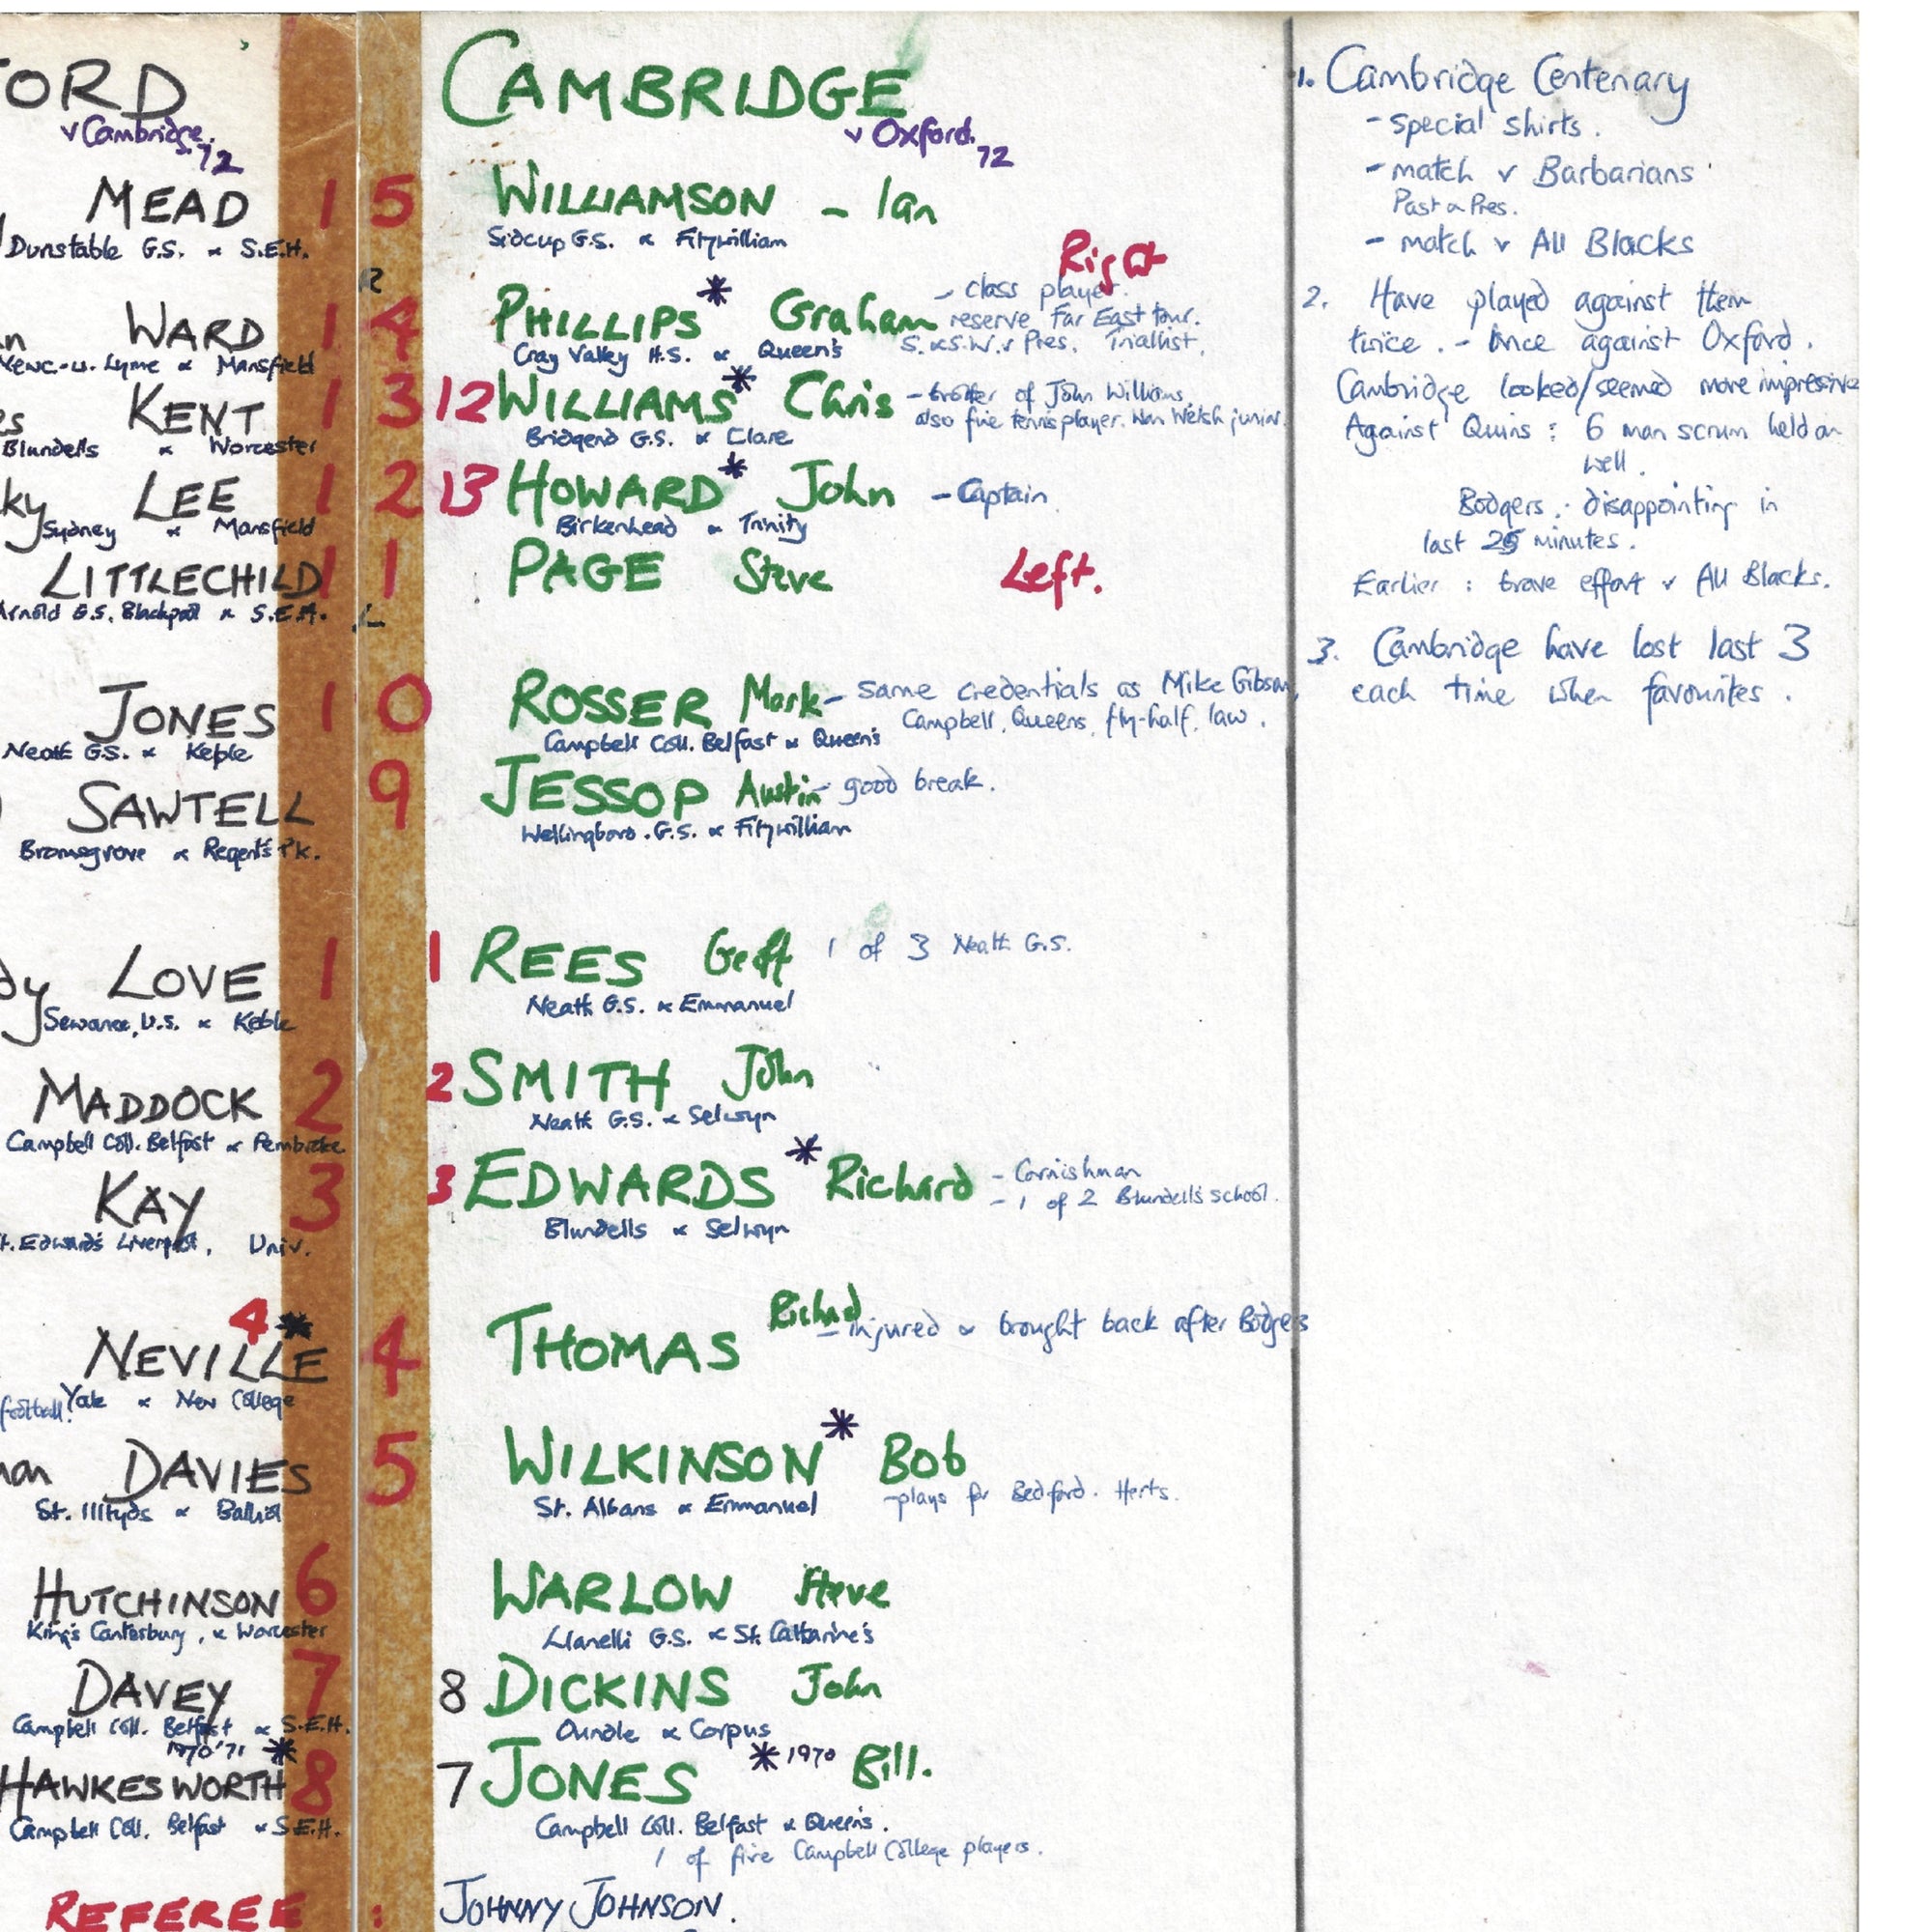 ORD
v Cambridge.
72
MEAD 1
Dunstable G.S. & S.E.H.
WARD 1
Newc.-u. Lyme & Mansfield
KENT 1
Blundells & Worcester
ky LEE 1
Sydney & Mansfield
LITTLECHILD 1
Arnold G.S. Blackpool & S.E.H.
JONES 1
Neath G.S. & Keble
SAWTELL
Bromsgrove & Regent's Pk.
dy LOVE 1
Sewanee, U.S. & Keble
MADDOCK 2
Campbell Coll. Belfast & Pembroke
KAY 3
t. Edward's Liverpool, Univ.
4 *
NEVILLE
football. Yale & New College
DAVIES
St. Illtyds & Balliol
HUTCHINSON 6
King's Canterbury, & Worcester
DAVEY 7
Campbell Coll. Belfast & S.E.H.
1970 '71 *
HAWKESWORTH 8
Campbell Coll. Belfast & S.E.H.
REFEREE :
CAMBRIDGE
v Oxford.
72
5 WILLIAMSON - Ian
Sidcup G.S. & Fitzwilliam
R
Right
4 PHILLIPS * Graham - class player.
reserve Far East tour.
S. & S.W. v Pres. Triallist.
Cray Valley H.S. & Queen's
3 12 WILLIAMS * Chris - brother of John Williams.
also fine tennis player. Won Welsh junior.
Bridgend G.S. & Clare
2 13 HOWARD * John - Captain.
Birkenhead & Trinity
1 PAGE Steve Left.
L
0 ROSSER Mark - same credentials as Mike Gibson,
Campbell, Queens, fly-half, law.
Campbell Coll. Belfast & Queen's
9 JESSOP Austin - good break.
Wellingboro. G.S. & Fitzwilliam
1 REES Geoff 1 of 3 Neath G.S.
Neath G.S. & Emmanuel
2 SMITH John
Neath G.S. & Selwyn
3 EDWARDS * Richard - Cornishman
- 1 of 2 Blundell's school.
Blundells & Selwyn
4 THOMAS Richard - injured & brought back after Bodgers
5 WILKINSON * Bob
- plays for Bedford. Herts.
St. Albans & Emmanuel
WARLOW Steve
Llanelli G.S. & St. Catharine's
8 DICKINS John
Oundle & Corpus
7 JONES * 1970 Bill.
Campbell Coll. Belfast & Queen's.
1 of five Campbell College players.
JOHNNY JOHNSON.
1. Cambridge Centenary
- special shirts.
- match v Barbarians
Past & Pres.
- match v All Blacks
2. Have played against them
twice. - Once against Oxford.
Cambridge looked/seemed more impressive
Against Quins : 6 man scrum held on
well.
Bodgers : disappointing in
last 25 minutes.
Earlier : brave effort v All Blacks.
3. Cambridge have lost last 3
each time when favourites.